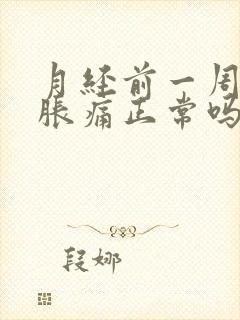 月经前一周
胀痛正常吗
段娜